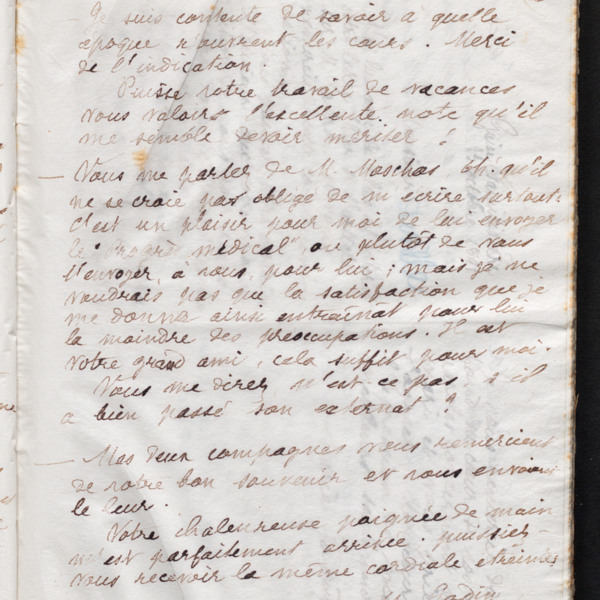 – Je suis contente de savoir à quelle
époque r'ouvrent les cours. Merci
de l'indication.
Puisse votre travail de vacances
vous valoir l'excellente note qu'il
me semble devoir mériter !
— Vous me parlez de M. Moschos. Oh ! qu'il
ne se croie pas obligé de m'écrire surtout :
c'est un plaisir pour moi de lui envoyer
le "Progrès médical" ou plutôt de vous
l'envoyer, à vous, pour lui ; mais je ne
voudrais pas que la satisfaction que je
me donne ainsi entraînât pour lui
la moindre des préoccupations. Il est
votre grand ami, cela suffit pour moi.
Vous me direz, n'est ce pas, s'il
a bien passé son externat ?
— Mes deux compagnes vous remercient
de votre bon souvenir et vous envoient
le leur.
Votre chaleureuse poignée de main
m'est parfaitement arrivée. puissiez-
vous recevoir la même cordiale étreinte